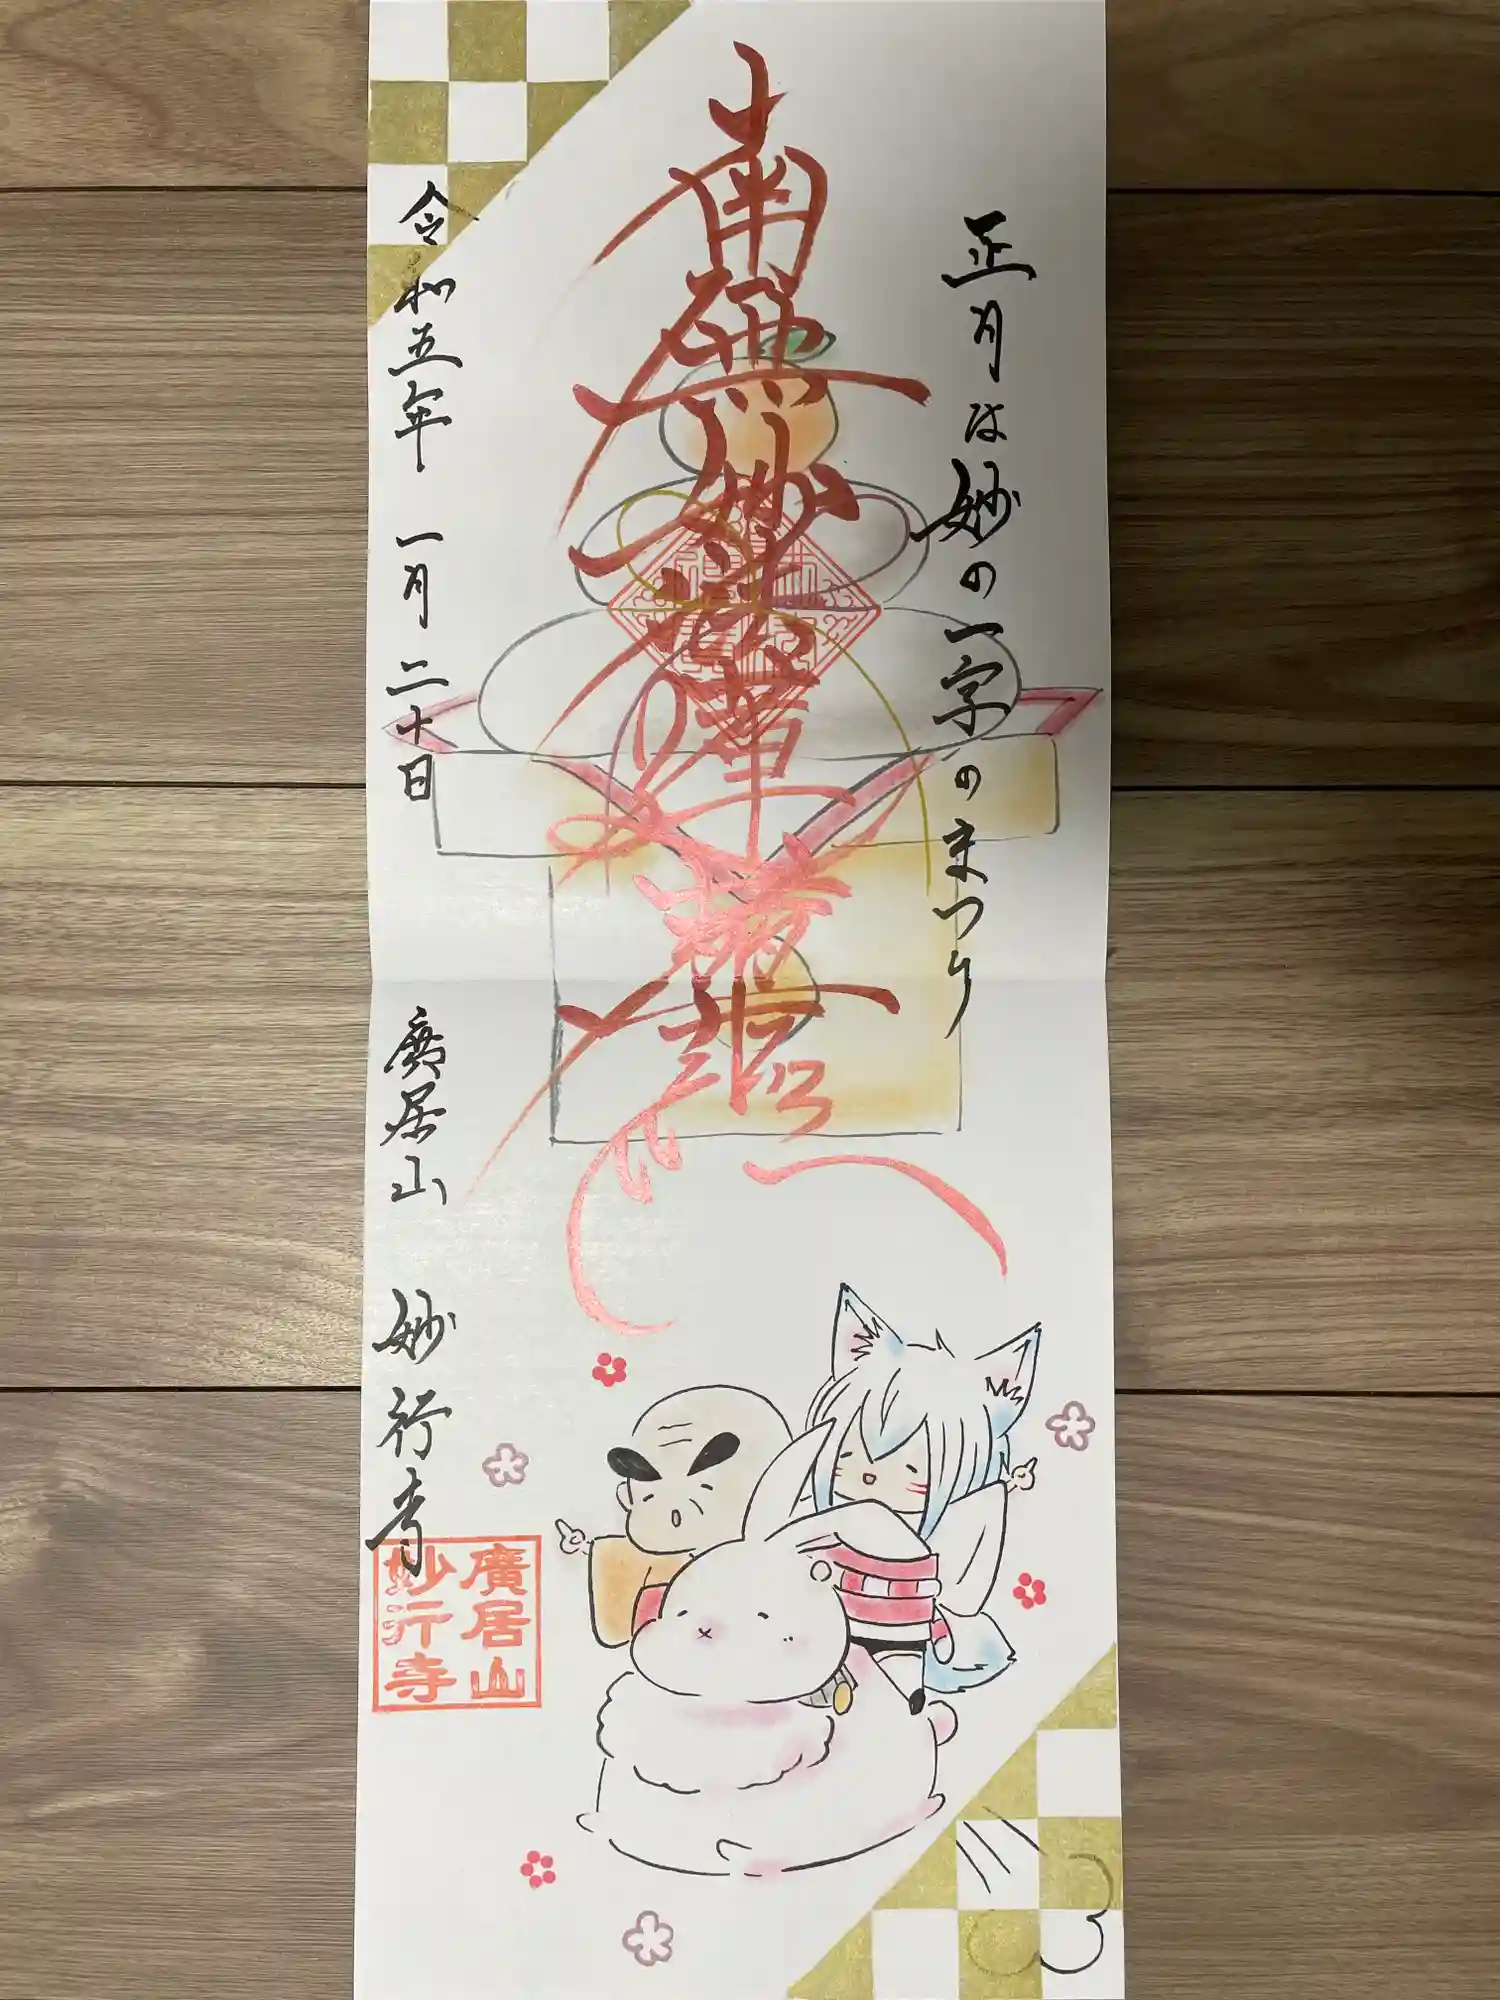 正月は妙の一字のまつり
南無妙法蓮華経
令和五年 一月二十日
廣居山 妙行寺
廣居山
妙行寺